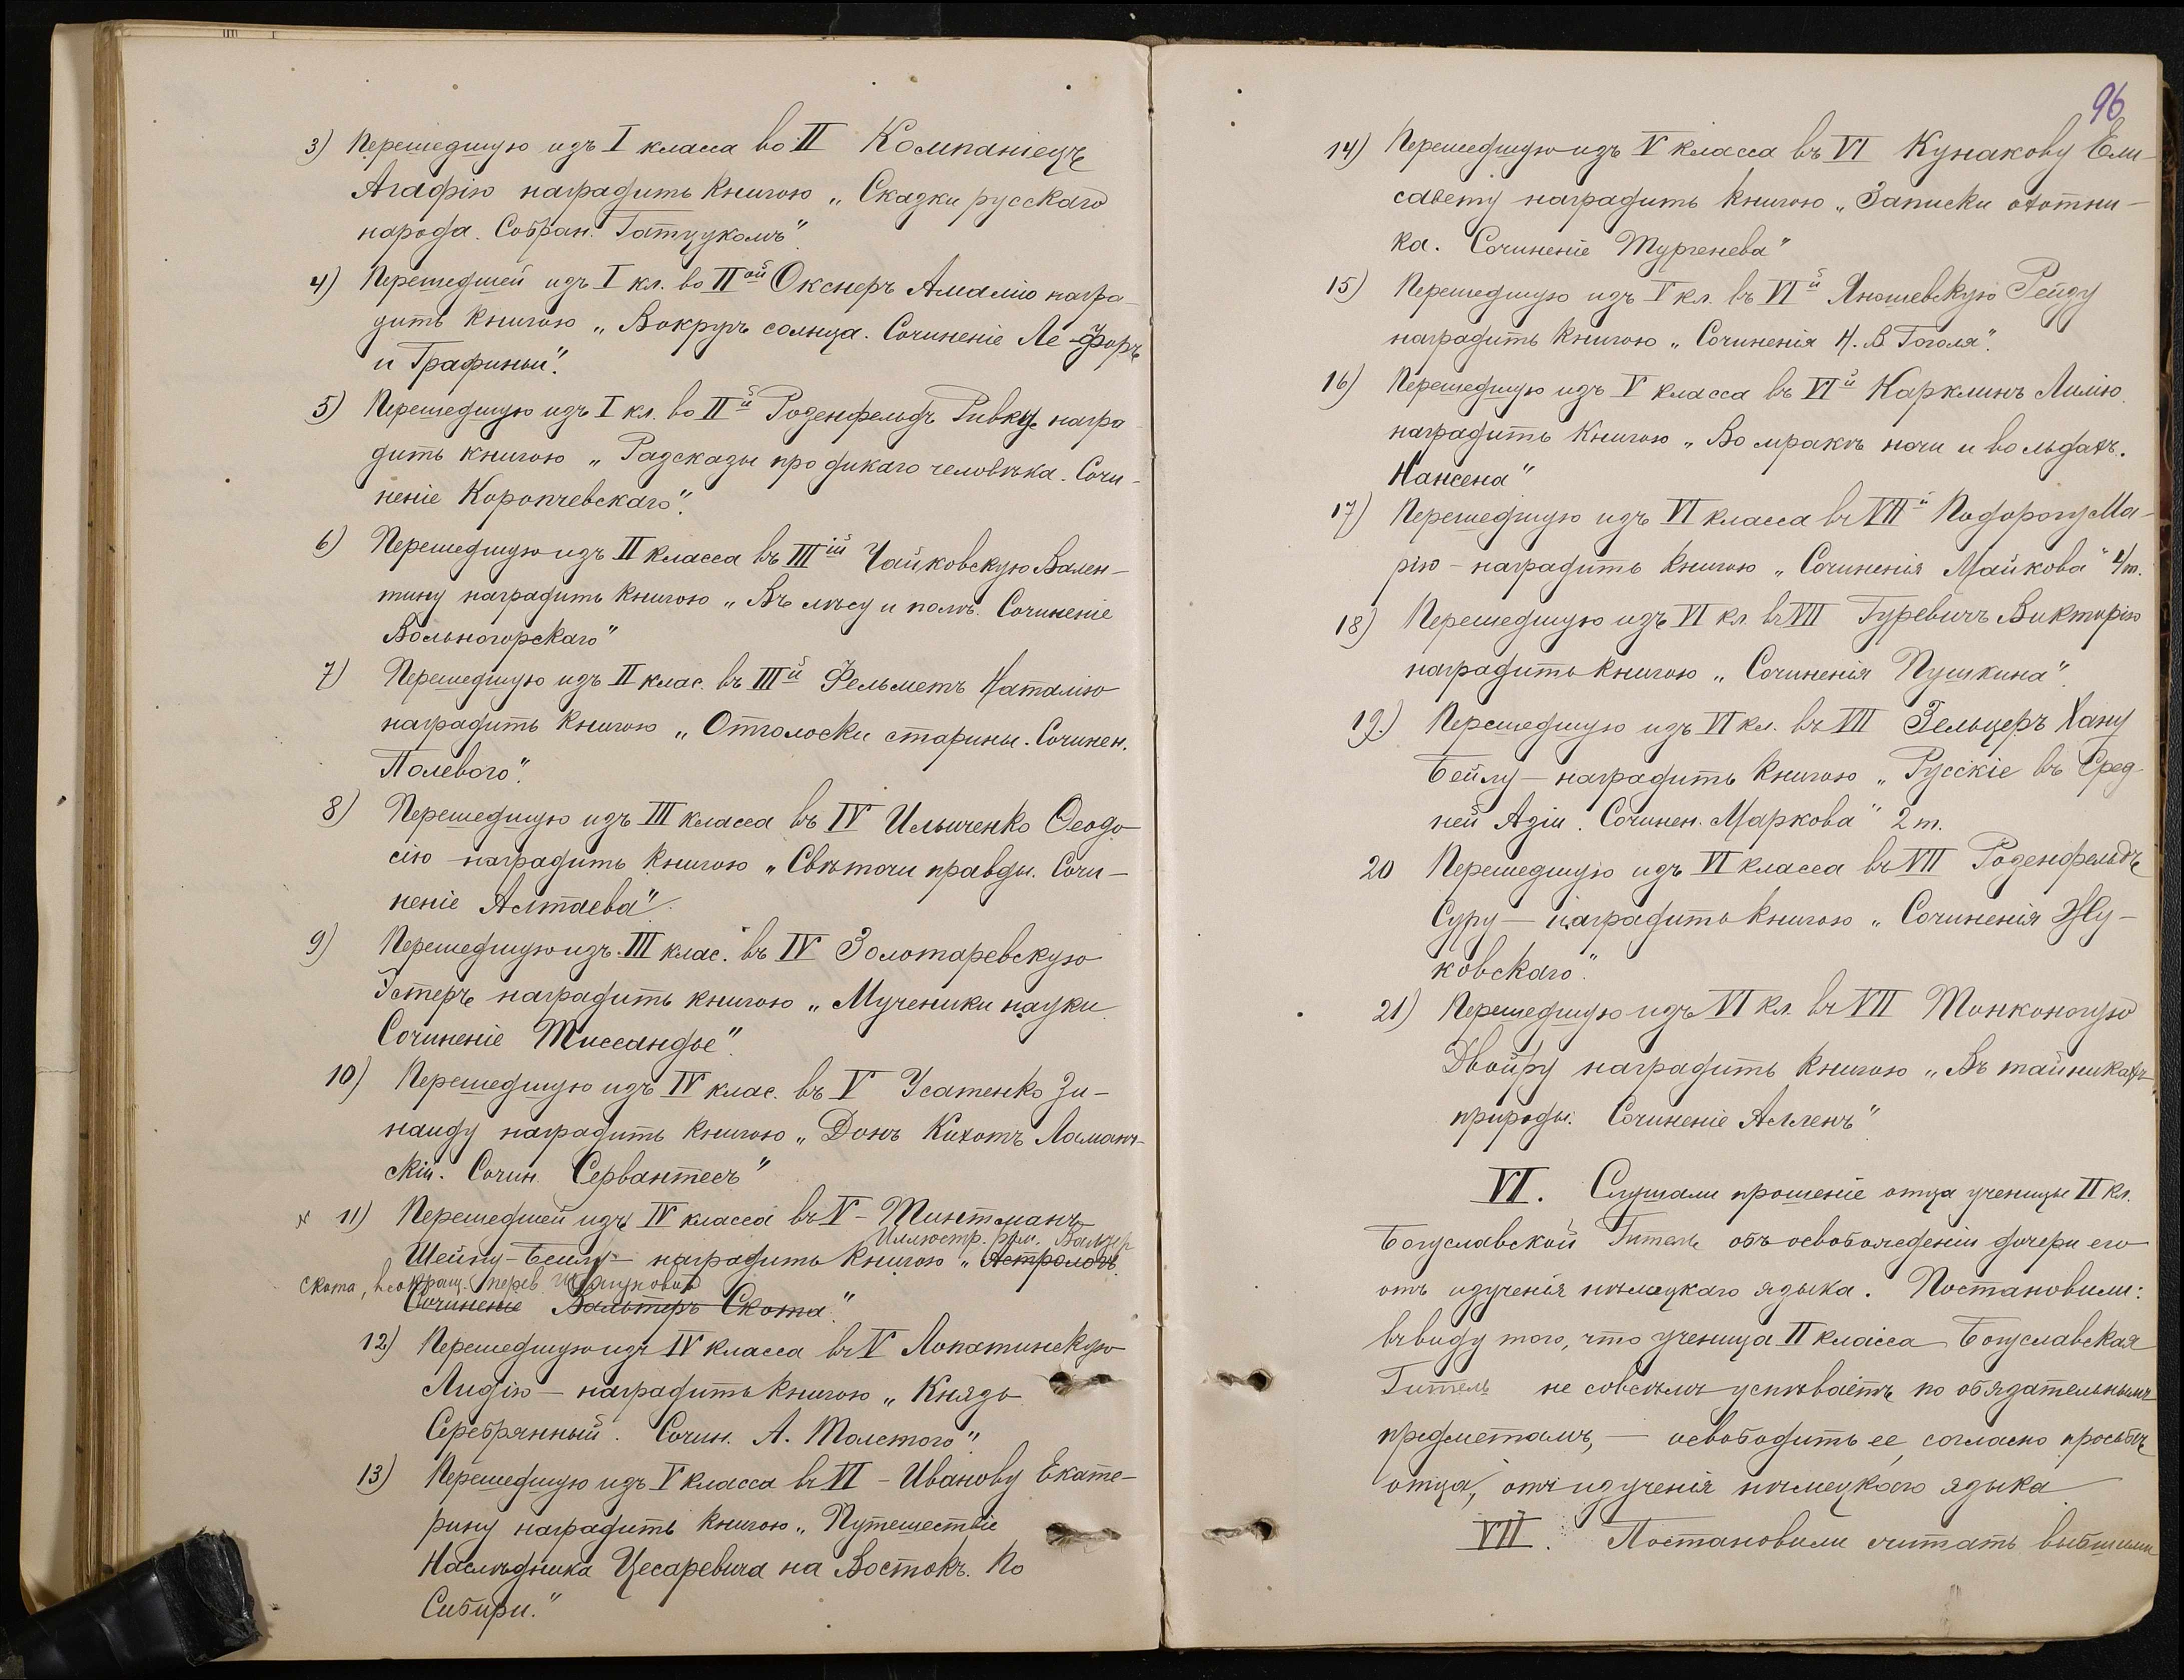 3) Перешедшую изъ I класса во II Компаніецъ
Агафію наградить книгою „Сказки русскаго
народа. Собран. Гатцукомъ“.
4) Перешедшей изъ I кл. во IIой Окснеръ Амалію награ-
дить книгою „Вокругъ солнца. Сочиненіе Ле-Форъ
и Графиньи“.
5) Перешедшую изъ I кл. во IIй Розенфельдъ Ривку награ
дить книгою „Разсказы про дикаго человѣка. Сочи-
неніе Коропчевскаго“.
6) Перешедшую изъ II класса въ IIIій Чайковскую Вален-
тину наградить книгою „Въ лѣсу и полѣ. Сочиненіе
Вольногорскаго“
7) Перешедшую изъ II клас. въ IIIй Фельметъ Наталію
наградить книгою „Отголоски старины. Сочинен.
Полевого“.
8) Перешедшую изъ III класса въ IV Ильиченко Ѳеодо
сію - наградить книгою „Свѣточи правды. Сочи-
неніе Алтаева“.
9) Перешедшую изъ III клас. въ IV Золотаревскую
Эстеръ наградить книгою „Мученики науки
Сочиненіе Тиссандье“.
10) Перешедшую изъ IV клас. въ V Усатенко Зи-
наиду наградить книгою „Донъ Кихотъ Ламанч-
скій. Сочин. Сервантесъ“
11) Перешедшей изъ IV класса въ V - Тинтманъ
Иллюстр. Вальтер
Шейну-Бейлу - наградить книгою „Астрологъ.
Скота, въ сокращ. перев. Шелгуновой
Сочиненіе Вальтеръ Скота“.
12) Перешедшую изъ IV класса въ V Лопатинскую
Лидію - наградить книгою „Князь
Серебрянный. Сочин. А. Толстого“.
13) Перешедшую изъ V класса въ VI - Иванову Екате-
рину наградить книгою „Путешествіе
Наслѣдника Цесаревича на Востокъ. По
Сибири.“
96
14) Перешедшую изъ V класса въ VI Кунакову Ели-
савету наградить книгою „Записки охотни-
ка. Сочиненіе Тургенева“
15) Перешедшую изъ V кл. въ VIй Яношевскую Рейзу
наградить книгою „Сочиненія Н. В. Гоголя“.
16) Перешедшую изъ V класса въ VIй Карклинъ Лилію
наградить книгою „Во мракѣ ночи и во льдахъ.
Нансена“
17) Перешедшую изъ VI класса въ VIIй Подорогу Ма-
рію - наградить книгою „Сочиненія Майкова“ 4 т.
18) Перешедшую изъ VI кл. въ VII Гуревичъ Викторію
наградить книгою „Сочиненія Пушкина“.
19.) Перешедшую изъ VI кл. въ VII Гельцеръ Хану
Бейлу - наградить книгою „Русскіе въ Сред-
ней Азіи. Сочинен. Маркова“ 2 т.
20 Перешедшую изъ VI класса въ VII Розенфельдъ
Суру - наградить книгою „Сочиненія Жу-
ковскаго“.
21) Перешедшую изъ VI кл. въ VII Тонконогую
Двойру наградить книгою „Въ тайникахъ
природы. Сочиненіе Алленъ“
VI. Слушали прошеніе отца ученицы II кл.
Богуславской Гитель объ освобожденіи дочери его
отъ изученія нѣмецкаго языка. Постановили:
въ виду того, что ученица II класса Богуславская
Гитель не совсѣмъ успѣваетъ по обязательнымъ
предметамъ, - освободить ее, согласно просьбѣ
отца, отъ изученія нѣмецкаго языка
VII. Постановили считать выбывшими